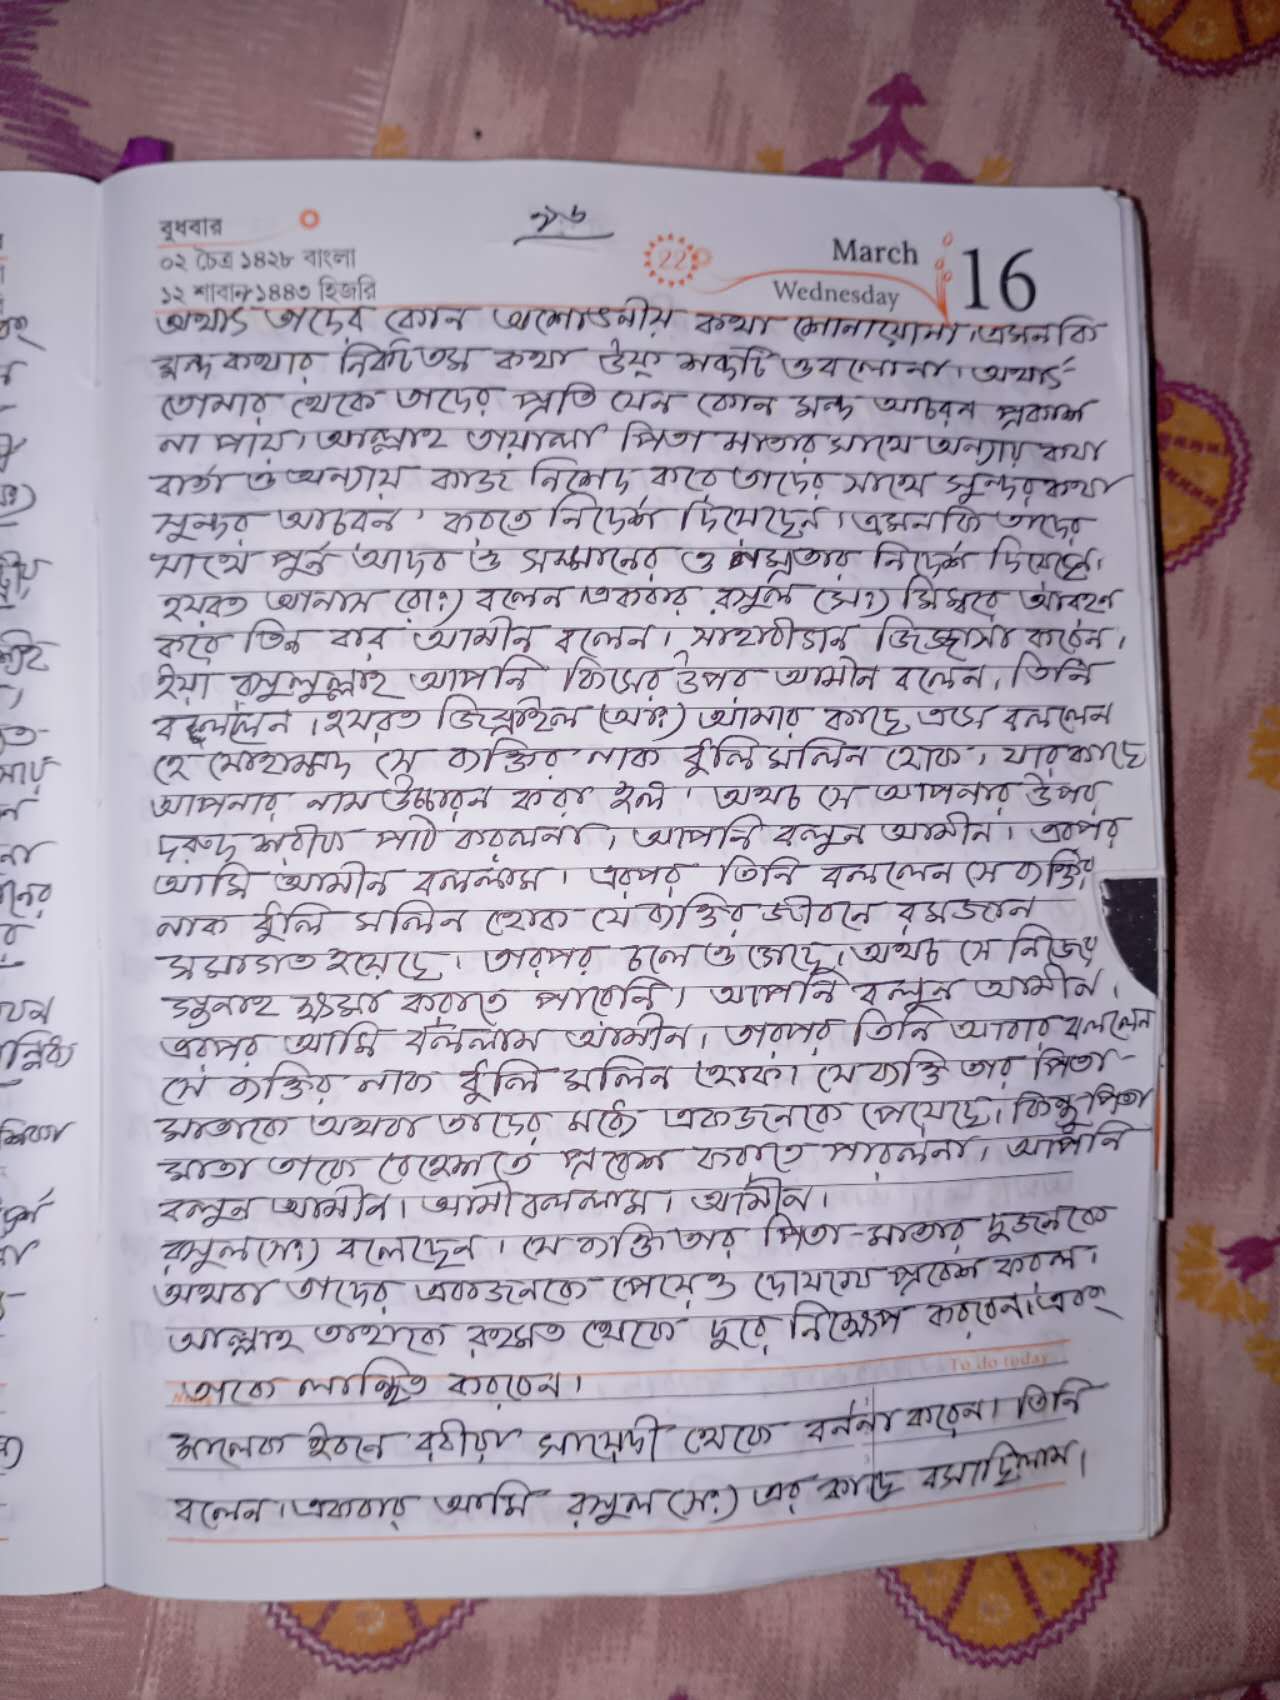 বুধবার
০২ চৈত্র ১৪২৮ বাংলা
১২ শাবান ১৪৪৩ হিজরি
৯৬
22
March
Wednesday
16
অথাৎ তাদের কোন অশোভনীয় কথা শোনায়োনা। এমনকি
মন্দ কথার নিকটতম কথা উফ্ শব্দটি ও বলোনা। অথাৎ
তোমার থেকে তাদের প্রতি যেন কোন মন্দ আচরন প্রকাশ
না পায়। আল্লাহ তায়ালা পিতা মাতার সাথে অন্যায় কথা
বার্তা ও অন্যায় কাজ নিশেদ করে তাদের সাথে সুন্দর কথা
সুন্দর আচরন করতে নির্দেশ দিয়েছেন। এমনকি তাদের
সাথে পুর্ন আদব ও সম্মানের ও নম্রতার নির্দেশ দিয়েছে।
হযরত আনাস (রাঃ) বলেন একবার রসুল (সঃ) মিম্বরে আরহন
করে তিন বার আমীন বলেন। সাহাবীগন জিজ্ঞাসা করেন।
ইয়া রসুলুল্লাহ আপনি কিসের উপর আমীন বলেন। তিনি
বললেন। হযরত জিব্রাইল (আঃ) আমার কাছে এসে বললেন
হে মোহাম্মদ সে ব্যক্তির নাক ধুলি মলিন হোক। যার কাছে
আপনার নাম উচ্চারন করা হল। অথচ সে আপনার উপর
দরুদ শরীফ পাঠ করলনা। আপনি বলুন আমীন। এরপর
আমি আমীন বললাম। এরপর তিনি বললেন সে ব্যক্তির
নাক ধুলি মলিন হোক যে ব্যক্তির জীবনে রমজান
সমাগত হয়েছে। তারপর চলে ও গেছে। অথচ সে নিজের
গুনাহ ক্ষমা করাতে পারেনি। আপনি বলুন আমীন।
এরপর আমি বললাম আমীন। তারপর তিনি আবার বললেন
সে ব্যক্তির নাক ধুলি মলিন হোক। যে ব্যক্তি তার পিতা-
মাতাকে অথবা তাদের মধ্যে একজনকে পেয়েছে। কিন্তু পিতা
মাতা তাকে বেহেশতে প্রবেশ করাতে পারলনা। আপনি
বলুন আমীন। আমী বললাম। আমীন।
রসুল (সঃ) বলেছেন। যে ব্যক্তি তার পিতা-মাতার দুজনকে
অথবা তাদের একজনকে পেয়েও দোযখে প্রবেশ করল।
আল্লাহ তাহাকে রহমত থেকে দুরে নিক্ষেপ করবেন। এবং
To do today
তাকে লান্ছিত করবেন।
মালেক ইবনে রবীয়া সায়েদী থেকে বর্ননা করেন। তিনি
বলেন। একবার আমি রসুল (সঃ) এর কাছে বসাছিলাম।